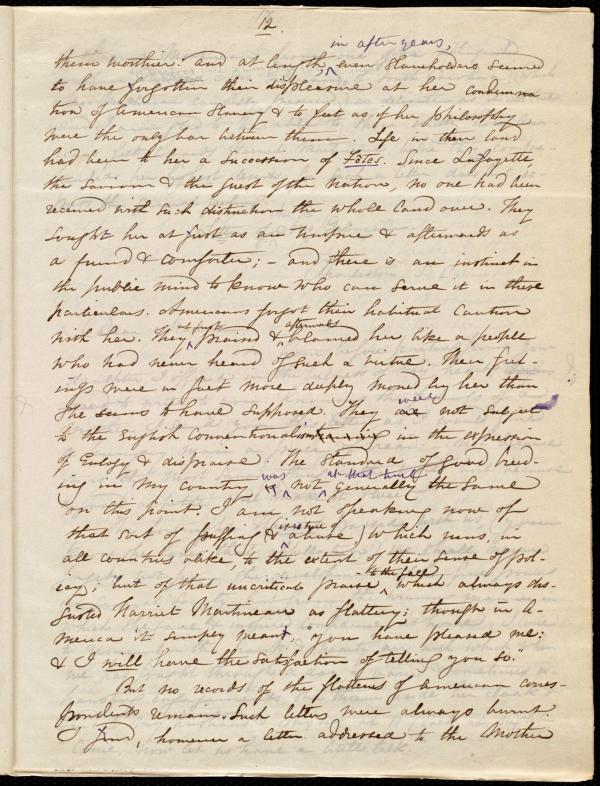 12.
in after years,
them worthier: and at length, even Slaveholders seemed
to have forgotten their displeasure at her condemna
tion of American Slavery & to feel as if her philosophy
were the only bar between them. Life in their land
had been to her a succession of Fêtes. Since Lafayette,
the Saviour & the guest of the nation, no one had been
received with such distinction the whole land over. They
sought her at first as an umpire & afterwards as
a friend & comforter; – and there is an instinct in
the public mind to know who can serve it in these
particulars. Americans forgot their habitual caution
at first afterwards
with her. They praised & blamed her, like a people
who had never heard of such a virtue. Their feel-
ings were in fact more deeply moved by her than
were
she seems to have supposed. They are not subject
to the English conventionalism in the expression
of Eulogy & dispraise. The standard of good breed-
was at that time
ing in my country is not generally the same
on this point. I am not speaking now of
that sort of puffing & abuse, which runs, in
all countries alike, to the extent of their sense of pol-
to the face
icy; but of that uncritical praise which always dis-
gusted Harriet Martineau as flattery: though in A-
merica it simply meant, "you have pleased me:
& I will have the satisfaction of telling you so."
But no records of the flatteries of American corres-
pondents remain. Such letters were always burnt.
I find, however a letter addressed to the Mother